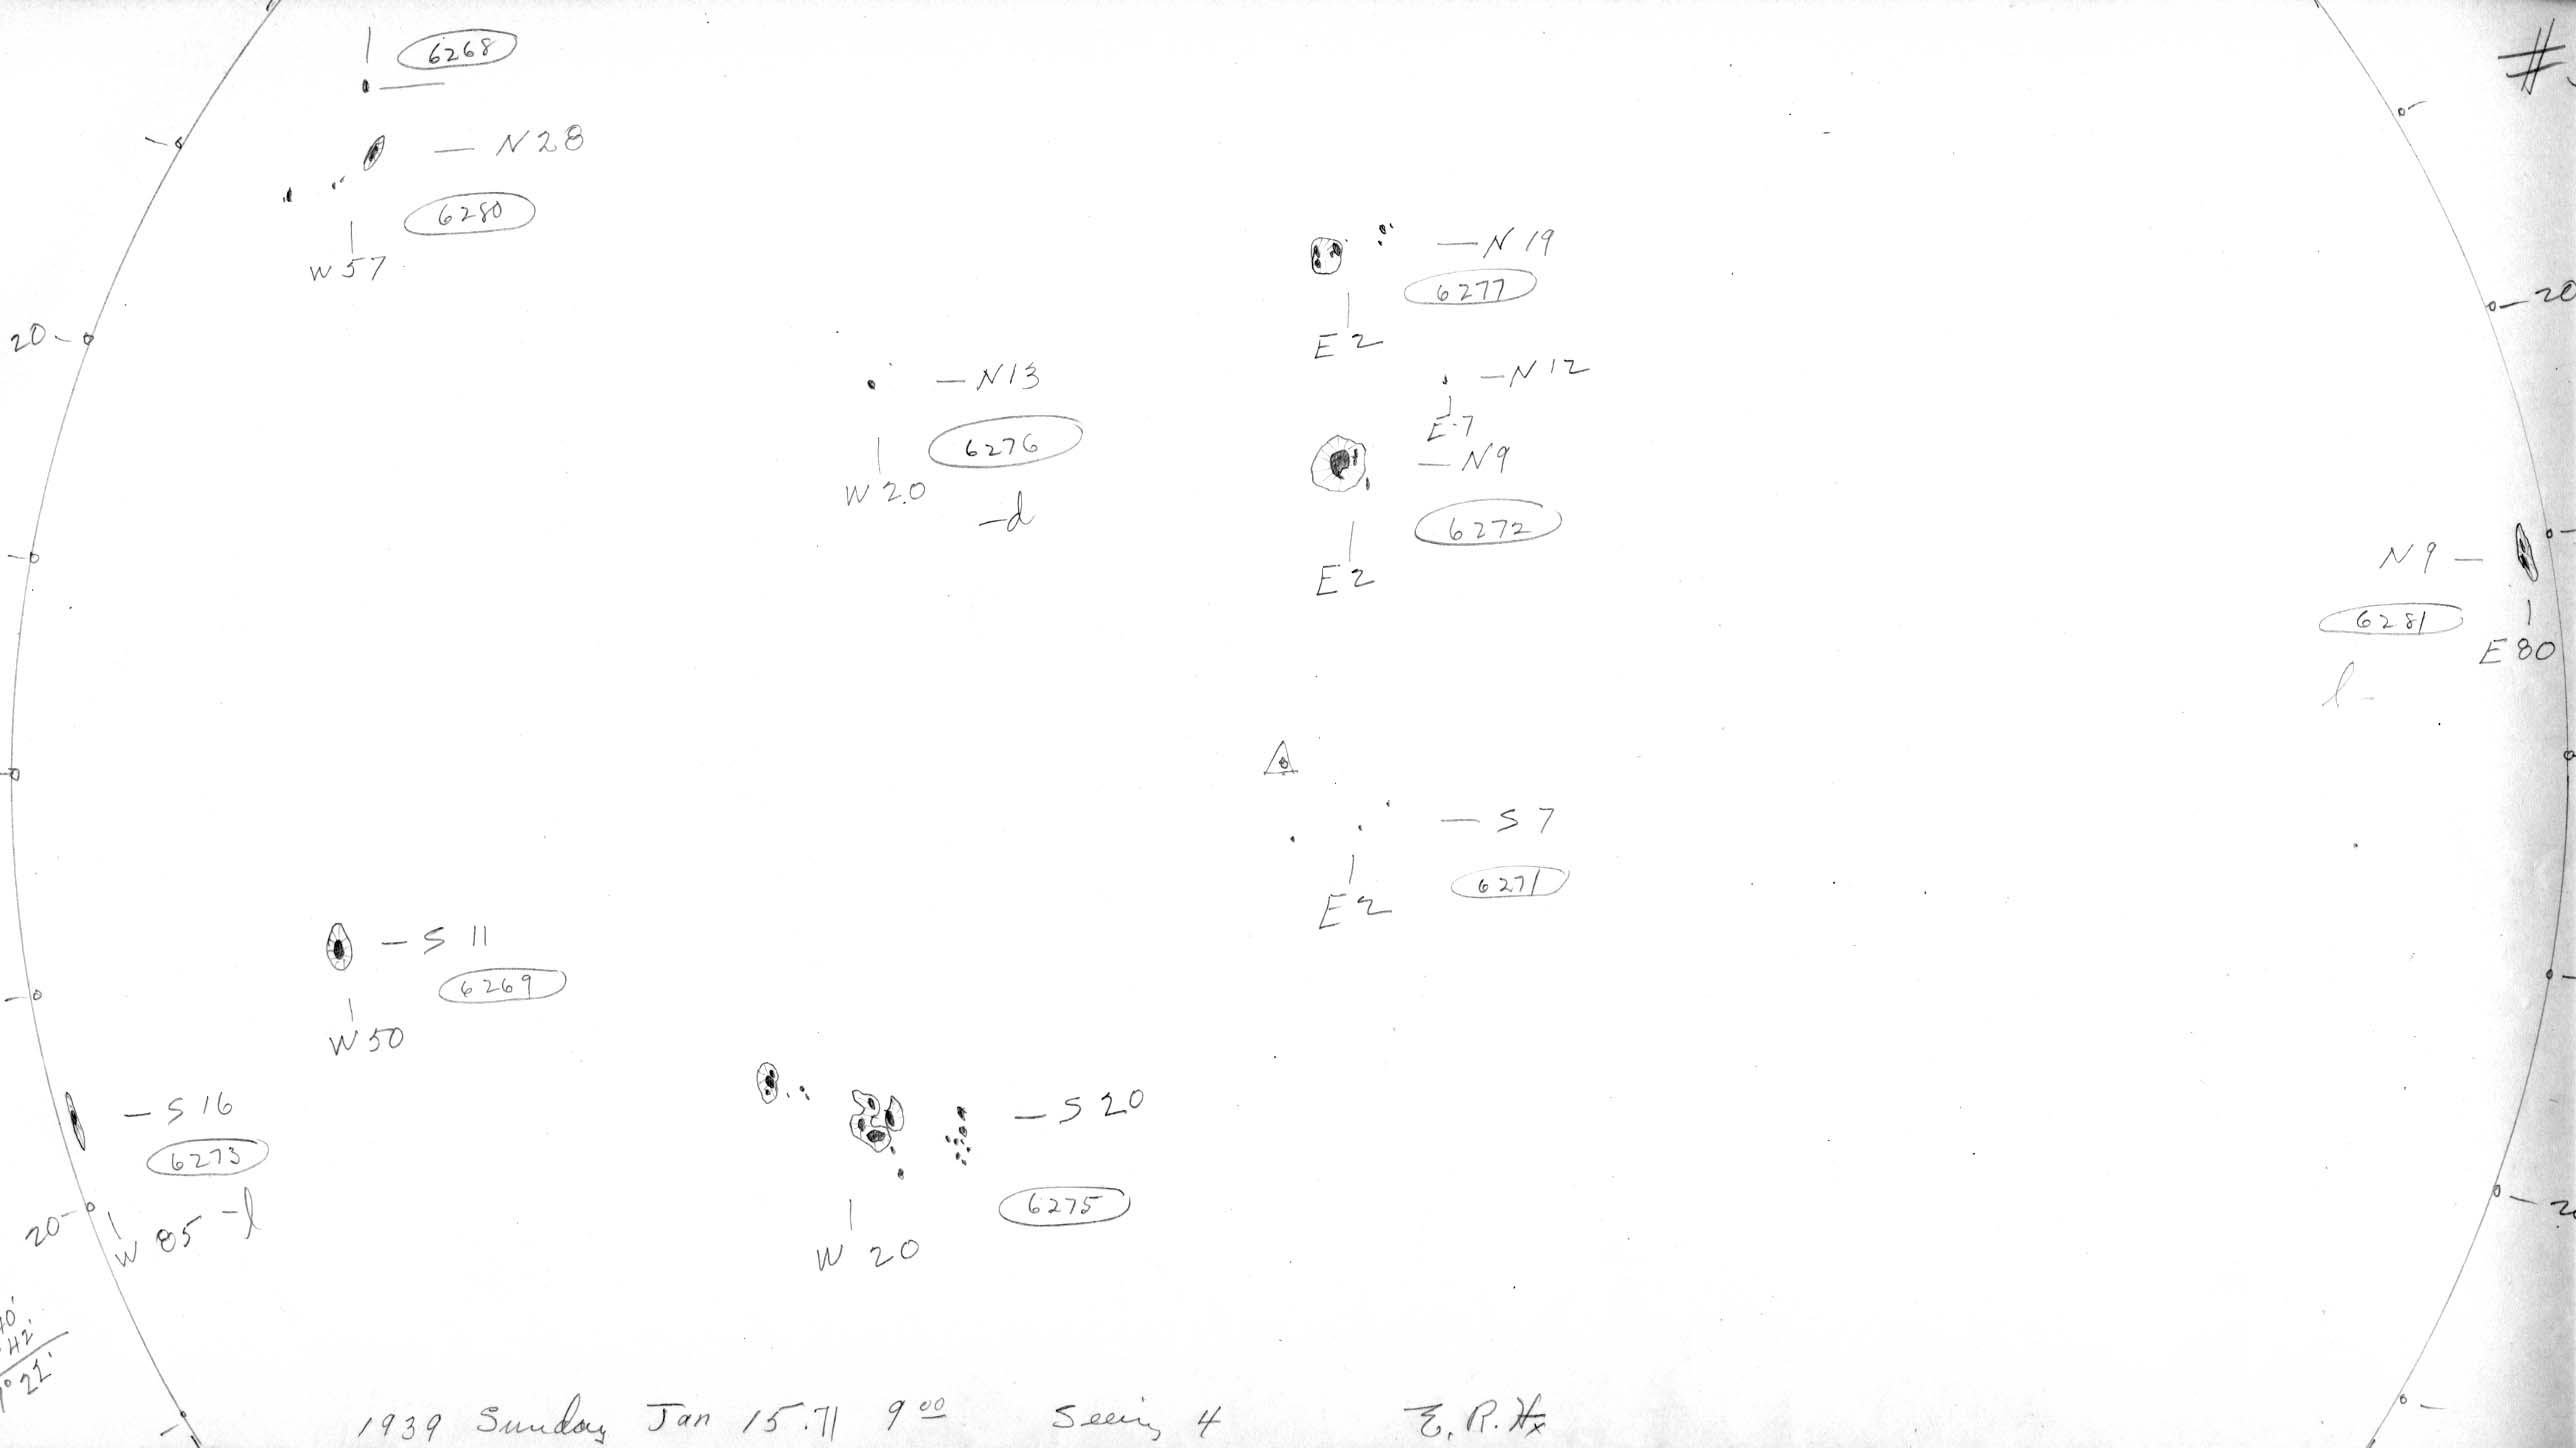 6268
#
N28
6280
W57
N 19
6277
E2
20
20
N13
6276
W20
-d
N12
E7
N9
6272
E2
N9
6281
E80
l-
S 7
6271
E2
S 11
6269
W50
S 16
6273
W 85 -l
20
S 20
6275
W 20
42'
22'
1939 Sunday Jan 15.71 9 00 Seeing 4 E.R.Hx